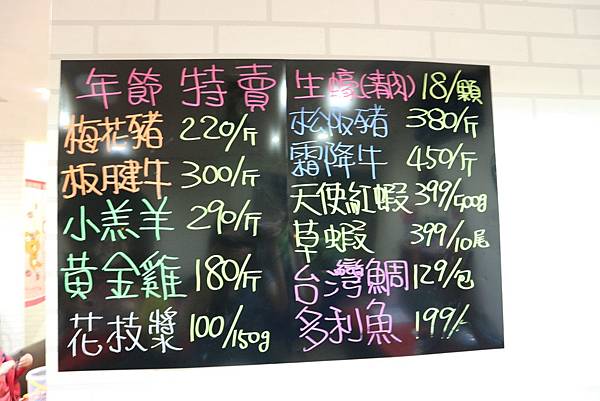 年節 特賣
梅花豬 220/斤
板腱牛 300/斤
小羔羊 290/斤
黃金雞 180/斤
花枝漿 100/150g
生蠔(清肉) 18/顆
松阪豬 380/斤
霜降牛 450/斤
天使紅蝦 399/500g
草蝦 399/10尾
台灣鯛 129/包
多利魚 199/-